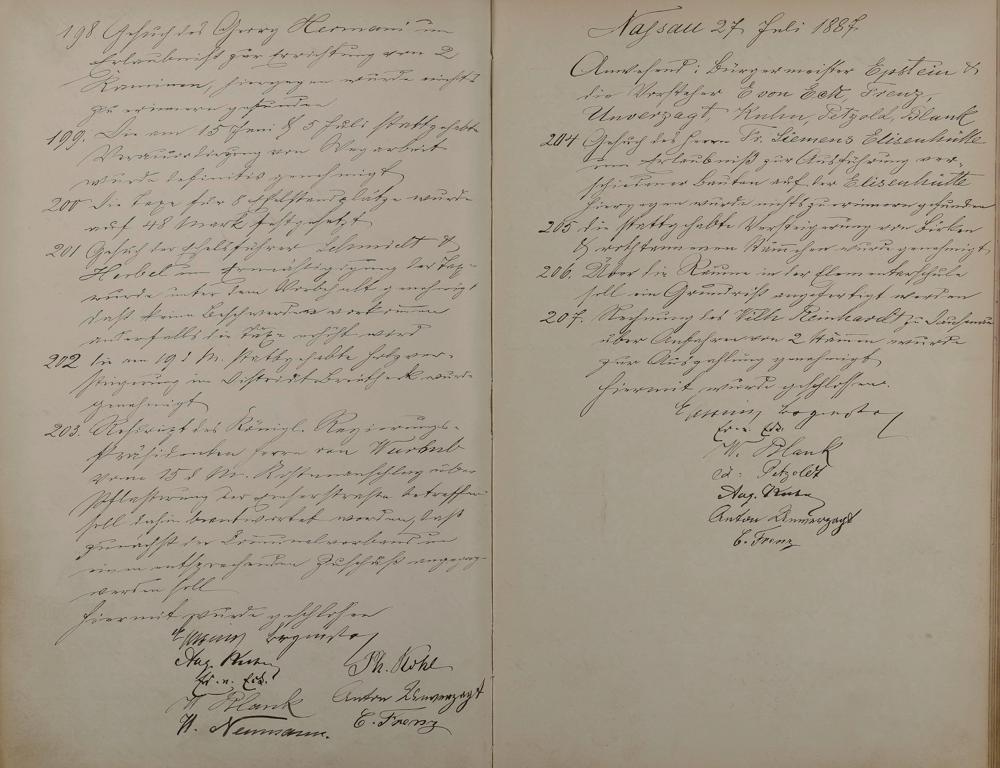 198 Gesuch des Georg Hermani um
Erlaubniß zur Errichtung von 2
Kaminen, hiergegen wurde nichts
zu erinnern gefunden
199. Die am 15 Juni & 5 Juli stattgehabte
Veraccordierung von Wegarbeit
wurde definitiv genehmigt
200 die Taxe für 8 Eselstandplätze wurde
auf 48 Mark festgesetzt
201 Gesuch der Eselsführer Schmidt &
Herbel um Ermäßigung der Tax-
wurde unter dem Vorbehalt genehmigt
daß keine Beschwerden vorkommen
andernfalls die Taxe erhöht wird
202 die am 19 d M. stattgehabte Holzver-
steigerung im District Breitheck wurde
genehmigt
203. Rescript des Königl. Regierungs-
Präsidenten Herrn von Wurmb
vom 15 d M. Kostenanschlag über
Pflasterung der Emserstraße betreffen
soll dahin beantwortet werden, daß
zunächst der Communalverband um
einen entsprechenden Zuschuß angegang-
werden soll
Hiermit wurde geschlossen
Epstein Bürgermstr
Aug. Kuhn
Ed. v. Eck.
W Blank
W. Neumann.
Ph. Kohl
Anton Unverzagt
C. Frenz
Nassau 27 Juli 1887.
Anwesend: Bürgermeister Epstein &
die Vorsteher E von Eck, Frenz,
Unverzagt, Kuhn, Petzold, Blank
204 Gesuch des Herrn Dr. Siemens Elisenhütte
um Erlaubniß zur Ausführung ver-
schiedener Bauten auf der Elisenhütte
hiergegen wurde nichts zu erinnern gefunden
205 die stattgehabte Versteigerung von Birken
& rothtannenen Stämmchen wurde genehmigt
206. Über die Räume in der Elementarschule
soll ein Grundriß angefertigt werden
207. Rechnung des Wilh Reinhardt zu
über Anfahren von 2 Stämmen wurde
zur Auszahlung genehmigt
Hiermit wurde geschlossen.
Epstein Bürgermstr
Ed. v. Eck.
W. Blank
Ed. Petzoldt
Aug. Kuhn
Anton Unverzagt
C. Frenz